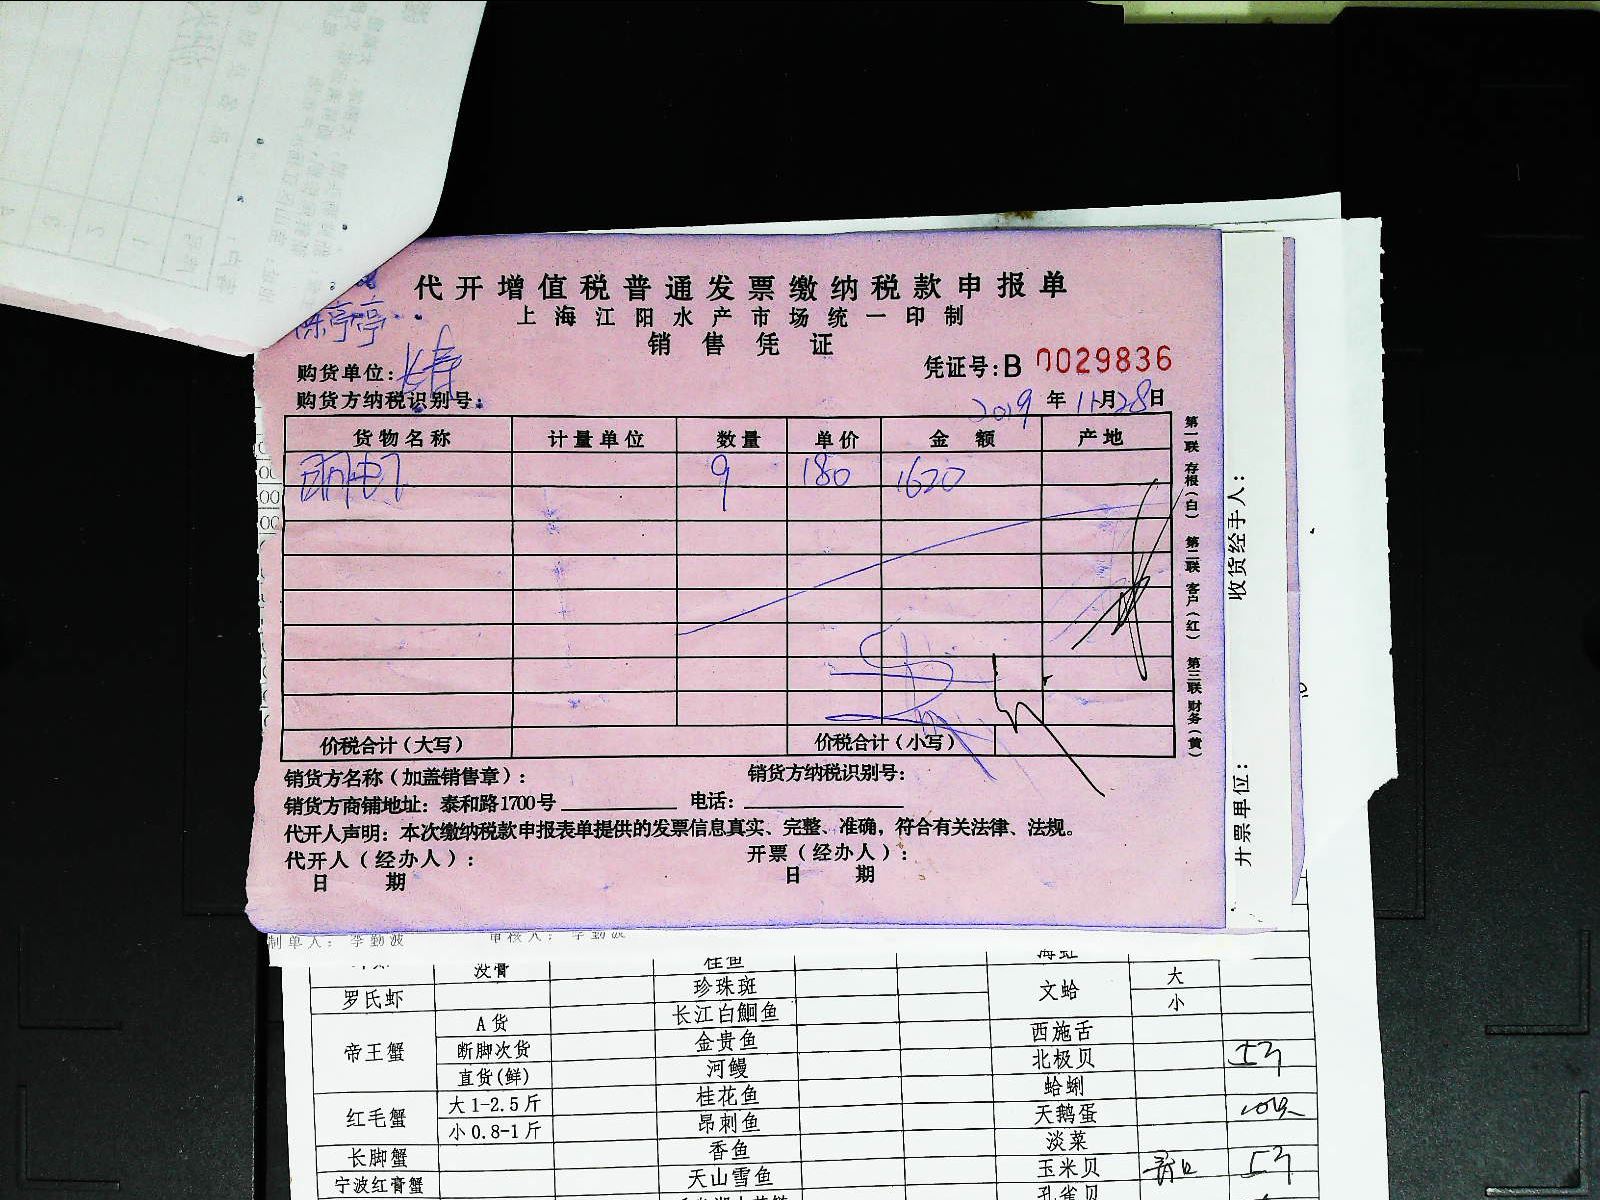 代开增值税普通发票缴纳税款申报单
上海江阳水产市场统一印制
销售凭证
陈亭亭
购货单位：长春
凭证号：B 0029836
购货方纳税识别号：
2019 年 11月28日
货物名称 计量单位 数量 单价 金额 产地
9 180 1620
价税合计（大写） 价税合计（小写）
销货方名称（加盖销售章）： 销货方纳税识别号：
销货方商铺地址：泰和路1700号 电话：
代开人声明：本次缴纳税款申报表单提供的发票信息真实、完整、准确，符合有关法律、法规。
代开人（经办人）： 开票（经办人）：
日 期 日 期
第一联 存根（白） 第二联 客户（红） 第三联 财务（黄）
收货经手人：
开票单位：
制单人： 李勤波 审核人： 李勤波
没膏 桂鱼 海虹
罗氏虾 珍珠斑 文蛤 大
长江白鮰鱼 小
帝王蟹 A货 金贵鱼 西施舌
断脚次货 河鳗 北极贝
直货(鲜) 桂花鱼 蛤蜊
红毛蟹 大1-2.5斤 昂刺鱼 天鹅蛋
小0.8-1斤 香鱼 淡菜
长脚蟹 天山雪鱼 玉米贝
宁波红膏蟹 孔雀贝